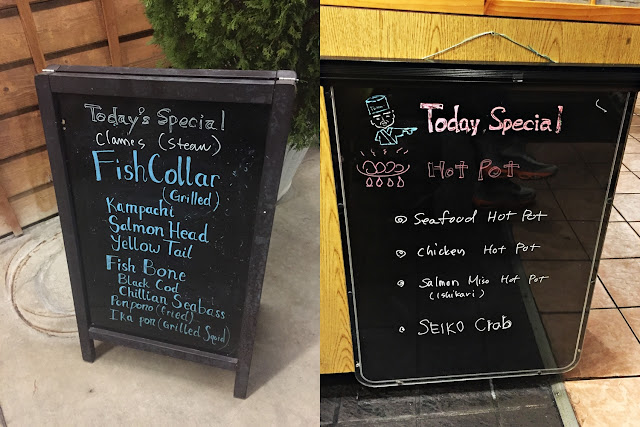 Today's Special
Clames (Steam)
Fish Collar
(Grilled)
Kampachi
Salmon Head
Yellow Tail
Fish Bone
Black Cod
Chillian Seabass
Ponpono (Fried)
Ika pon (Grilled Squid)
Today Special
Hot Pot
Seafood Hot Pot
Chicken Hot Pot
Salmon Miso Hot Pot
(Ishikari)
SEIKO Crab